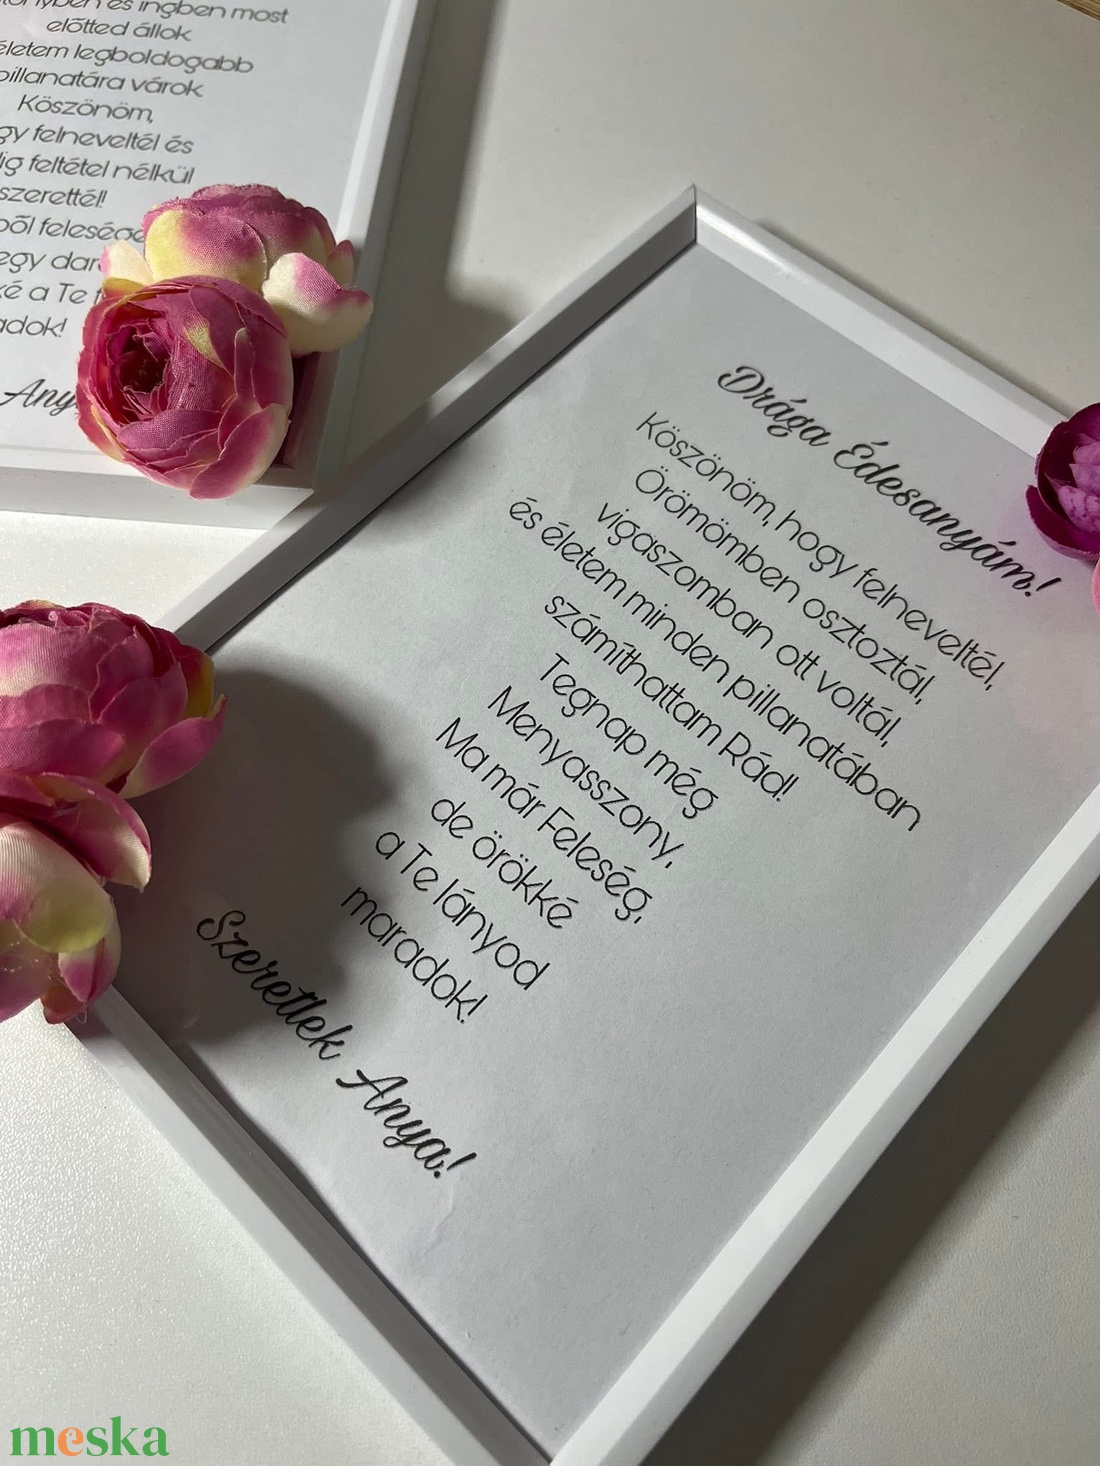 és ingben most
előtted állok
életem legboldogabb
pillanatára várok
Köszönöm,
felneveltél és
feltétel nélkül
szerettél!
egy
a Te
Drága Édesanyám!
Köszönöm, hogy felneveltél,
Örömömben osztoztál,
vigaszomban ott voltál,
és életem minden pillanatában
számíthattam Rád!
Tegnap még
Menyasszony,
Ma már Feleség,
de örökké
a Te lányod
maradok!
Szeretlek Anya!
meska